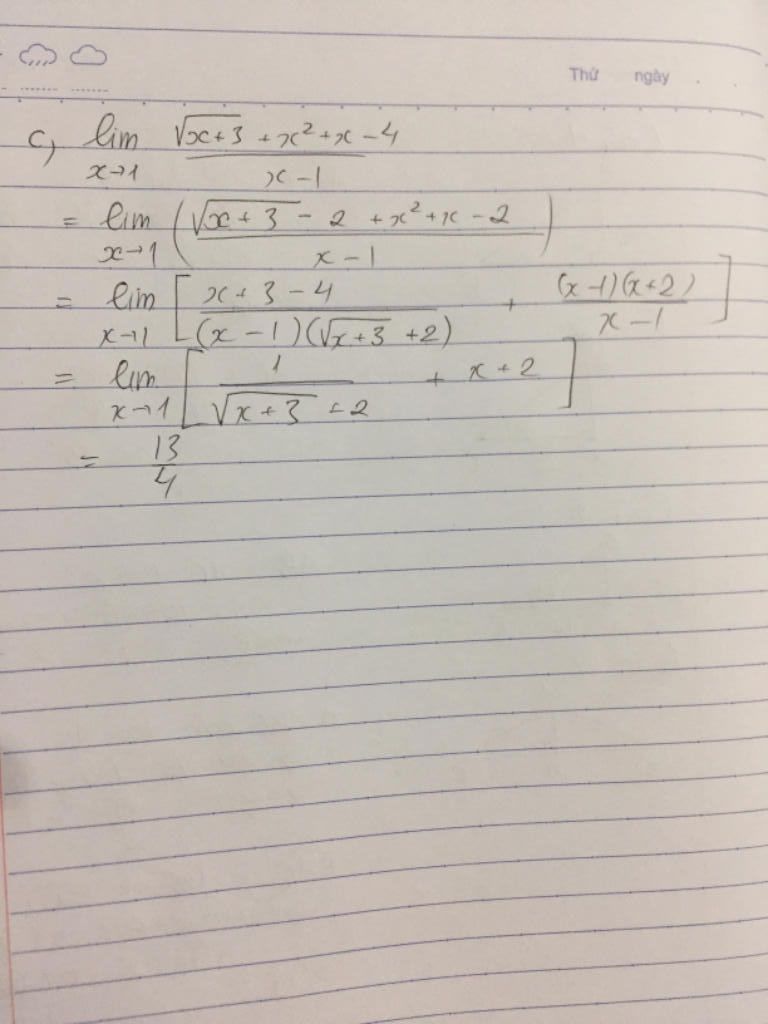 Thứ ngày
c, lim x→1 (√(x+3) + x² + x - 4)/(x - 1)
= lim x→1 ((√(x+3) - 2 + x² + x - 2)/(x - 1))
= lim x→1 [(x + 3 - 4)/((x - 1)(√(x+3) + 2)) + ((x - 1)(x + 2))/(x - 1)]
= lim x→1 [1/(√(x+3) + 2) + x + 2]
= 13/4